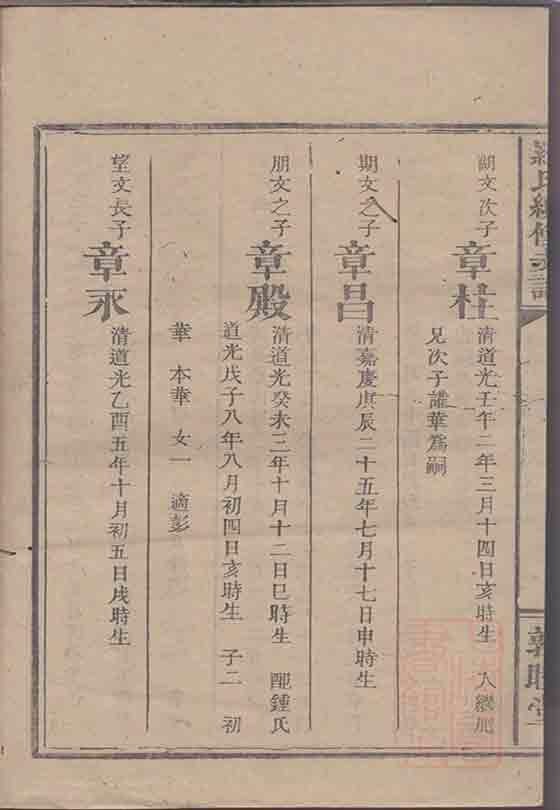 氏續修
敦睦堂
次子 章桂 清道光壬午二年三月十四日亥時生 入繼胞
兄次子護華爲嗣
期文之子 章昌 清嘉慶庚辰二十五年七月十七日申時生
朋文之子 章殿 清道光癸未三年十月十二日巳時生 配鍾氏
道光戊子八年八月初四日亥時生 子二 初
華 本華 女一 適彭
望文長子 章永 清道光乙酉五年十月初五日戌時生